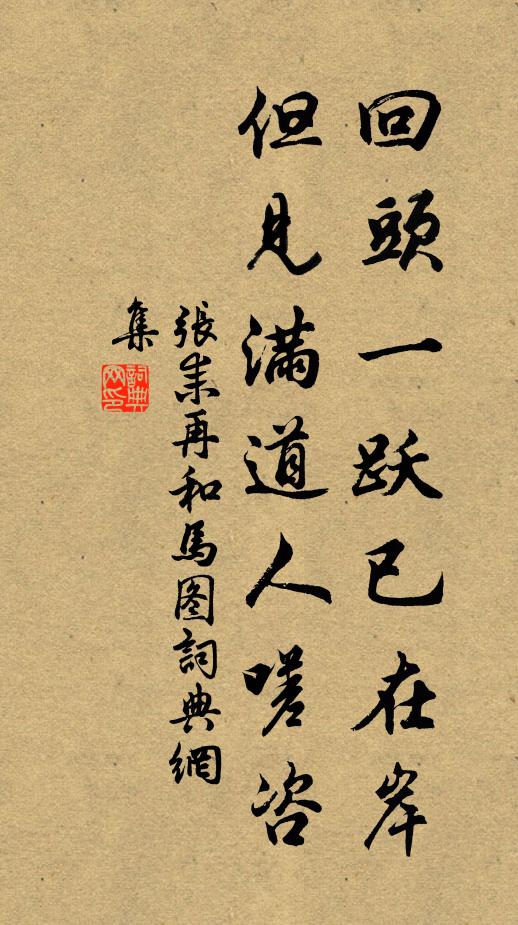 回頭一跃已在岸
但見滿道人嗟咨
張耒再和馬图詞典網
集
詞典網印